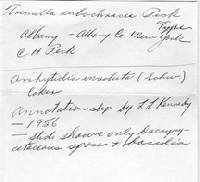 Tremella subochracea Peck
Type
Albany - Albany Co New York
C H Peck
Exidia
Coker
annotation slip by L L Kennedy
- 1956
- slide shows only
spores + basidia